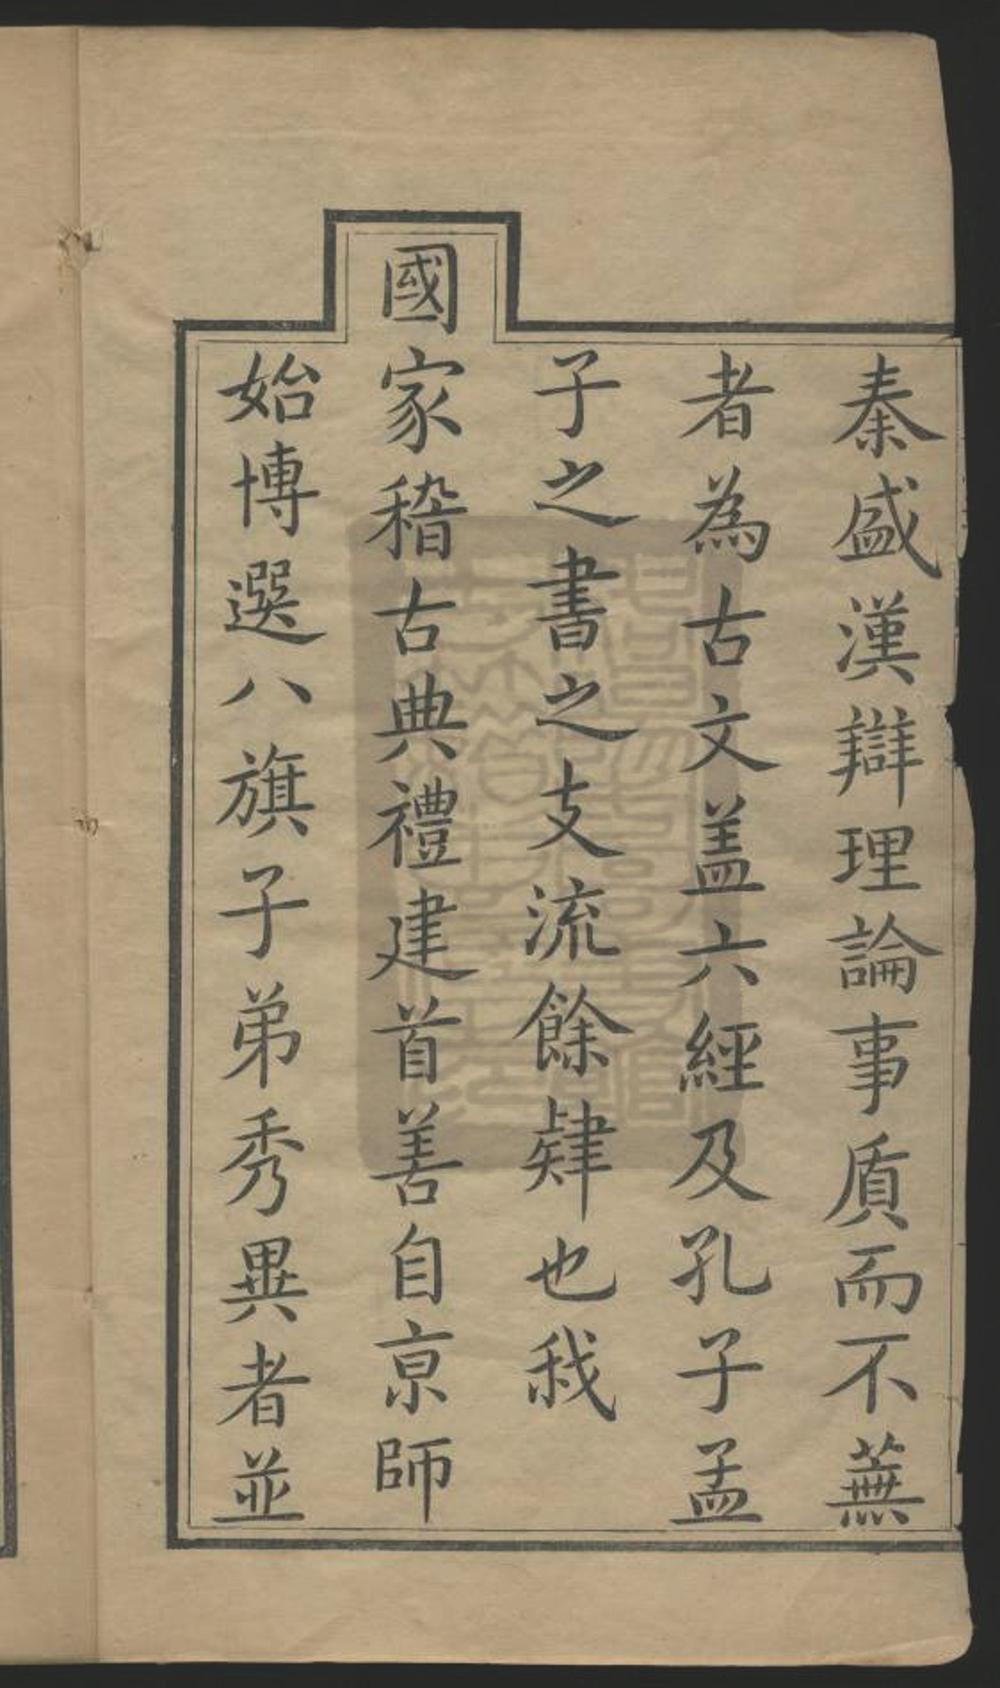 秦盛漢辯理論事質而不蕪
者為古文蓋六經及孔子孟
子之書之支流餘肄也我
國家稽古典禮建首善自京師
始博選八旗子弟秀異者並